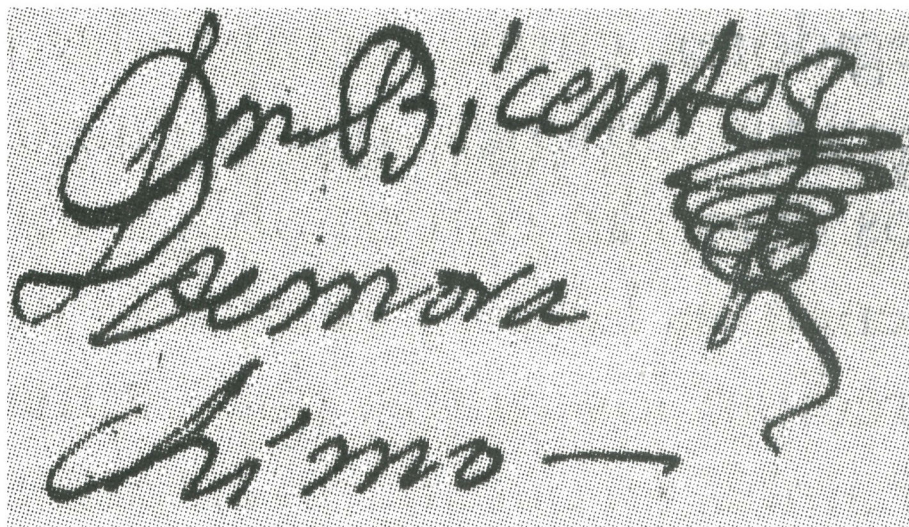 Dn Bicente
demora
Chimo —